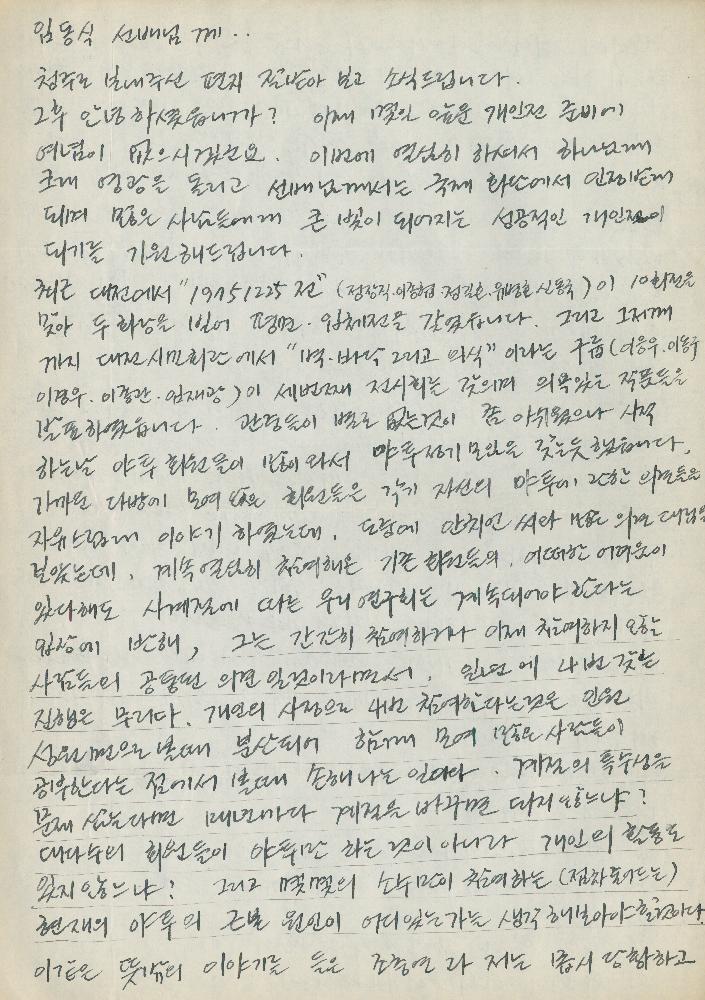 임동식 선배님께..
청주로 보내주신 편지 잘받아 보고 소식드립니다.
그후 안녕하셨읍니까? 이제 몇일 앞둔 개인전 준비에
여념이 없으시겠군요. 이번에 열심히 하셔서 하나님께
크게 영광을 돌리고 선배님께서는 국제 화단에서 인정받게
되며 많은 사람들에게 큰 빛이 되어지는 성공적인 개인전이
되기를 기원해드립니다.
최근 대전에서 "19751225전" (정장직.이종협.정길호. 신동국) 이 10회전을
맞아 두 화랑을 빌어 평면.입체전을 갖었읍니다. 그리고 그저께
까지 대전시민회관에서 "벽.바닥 그리고 의식" 이라는 구릅 (
이종관.임재광) 이 세번째 전시회를 갖으며 의욕있는 작품들을
발표하였읍니다. 관중들이 별로 없는것이 좀 아쉬웠으나 시작
하는날 야투 회원들이 많이 와서 야투정기모임을 갖는듯 했읍니다.
가까운 다방에 모여 많은 회원들은 각기 자신의 야투에 관한 의견들을
자유스럽게 이야기 하였는데, 도중에 안치인씨와 많은 의견 대립을
빚었는데, 계속 열심히 참여해온 기존 회원들의, 어떠한 어려움이
있다해도 사계절에 따른 우리 연구회는 계속되어야 한다는
입장에 반해, 그는 간간히 참여하거나 이제 참여하지 않는
사람들의 공통된 의견일것이라면서, 일년에 4번 갖는
진행은 무리다. 개인의 사정으로 4번 참여한다는것은 인원
성원면으로 볼때 분산되어 함께 모여 많은 사람들이
공부한다는 점에서 볼때 손해나는 일이다. 계절의 특수성을
문제 삼는다면 매년마다 계절을 바꾸면 되지 않느냐?
대다수의 회원들이 야투만 하는것이 아니라 개인의 활동도
있지 않느냐? 그리고 몇몇의 소수만이 참여하는 (점차 줄어드는)
현재의 야투의 근본 원인이 어디있는가는 생각해보아야 할것이다.
이같은 뜻밖의 이야기를 들은 조충연과 저는 몹시 당황하고